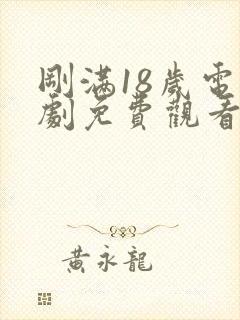 剛滿18歲電
劇免費觀看
黃永龍